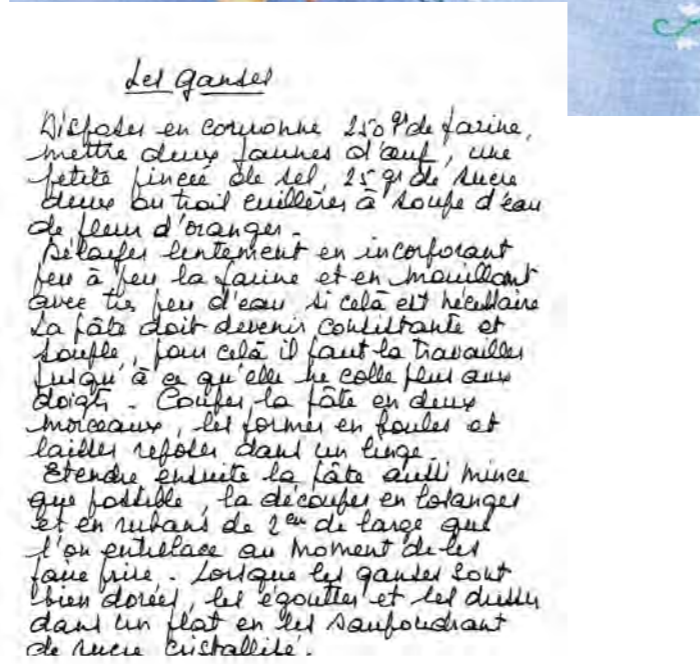 Les Ganses
Disposer en couronne 250 gr de farine,
mettre deux jaunes d'œuf, une
petite pincée de sel, 25 gr de sucre
deux ou trois cuillères à soupe d'eau
de fleur d'oranger.
Délayer lentement en incorporant
peu à peu la farine et en mouillant
avec très peu d'eau si celà est nécessaire
La pâte doit devenir consistante et
souple, pour celà il faut la travailler
jusqu'à ce qu'elle ne colle plus aux
doigts. Couper la pâte en deux
morceaux, les former en boules et
laisser reposer dans un linge.
Etendre ensuite la pâte aussi mince
que possible, la découper en losanges
et en rubans de 2 cm de large que
l'on entrelace au moment de les
faire frire. Lorsque les ganses sont
bien dorées, les égoutter et les dresser
dans un plat en les saupoudrant
de sucre cristallisé.